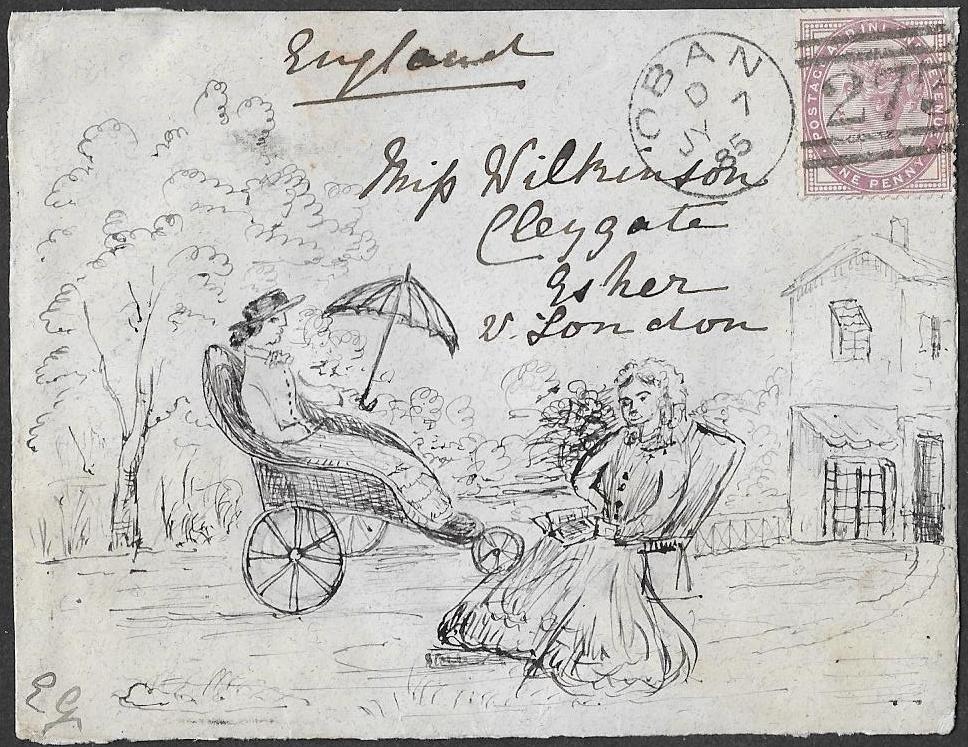 England
OBAN
D
JY 7
85
POSTAGE AND INLAND REVENUE
ONE PENNY
27
Miss Wilkinson
Cleygate
Esher
v. London
EG